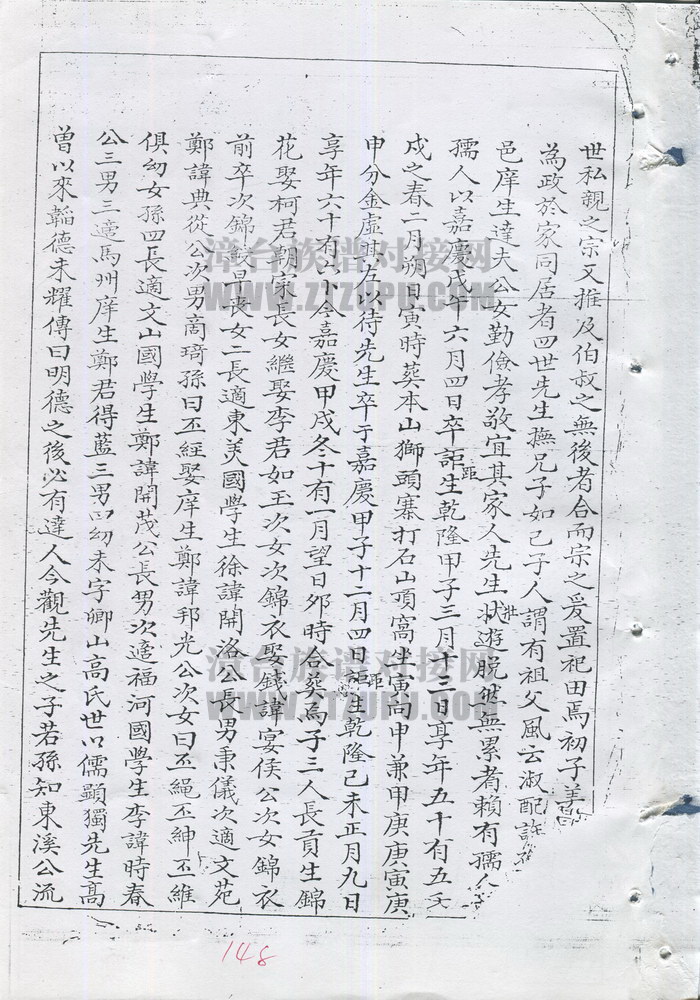 世私親之宗又推及伯叔之無後者合而宗之爰置祀田焉初子美
為政於家同居者四世先生撫兄子如己子人謂有祖父風云淑配許
邑庠生達夫公女勤儉孝敬宜其家人先生壯遊脫然無累者賴有孺人
孺人以嘉慶戊午六月四日卒距生乾隆甲子三月十三日享年五十有五
戌之春二月朔日寅時葬本山獅頭寨打石山頂窩坐寅向申兼甲庚庚寅庚
申分金虛其右以待先生卒于嘉慶甲子十二月四日距生乾隆己未正月九日
享年六十有六今嘉慶甲戌冬十有一月望日夘時合葬焉子三人長貢生錦
花娶柯君朝家長女繼娶李君如玉次女次錦衣娶錢諱宴侯公次女錦衣
前卒次錦 早喪女二長適東美國學生徐諱開洛公長男秉儀次適文苑
鄭諱典從公次男商琦孫曰丕經娶庠生鄭諱邦光公次女曰丕繩丕紳丕維
俱幼女孫四長適文山國學生鄭諱開茂公長男次適福河國學生李諱時春
公三男三適馬州庠生鄭君得藍三男四幼未字卿山高氏世以儒顯獨先生高
曾以來韜德未耀傳曰明德之後必有達人今觀先生之子若孫知東溪公流
漳台族谱对接网
WWW.ZTZUPU.COM
漳台族谱对接网
WWW.ZTZUPU.COM
148